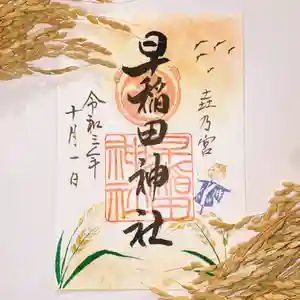 壵乃宮
早稲田神社
令和三年
十月一日
早稲田
神社